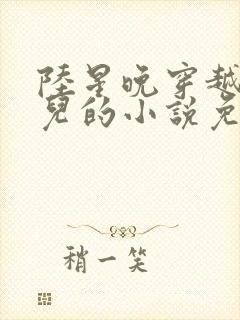 陸星晚穿越
兒的小說免
稍一笑